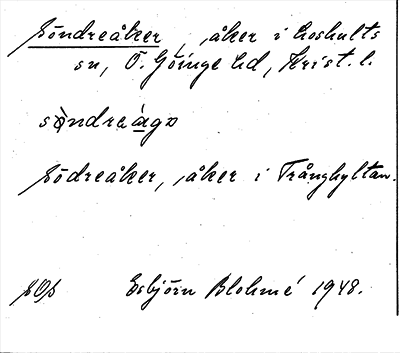 Söndreåker, åker i Loshults
sn, Ö. Göinge hd, Krist. l.
Södreåker, åker i Trånghyltan.
Esbjörn Blohmé 1948.